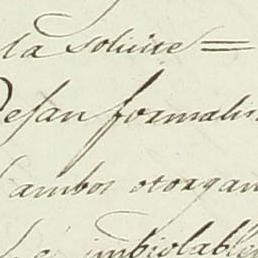 la solicite =
desan formalis
ambos otorgan
imbiolable